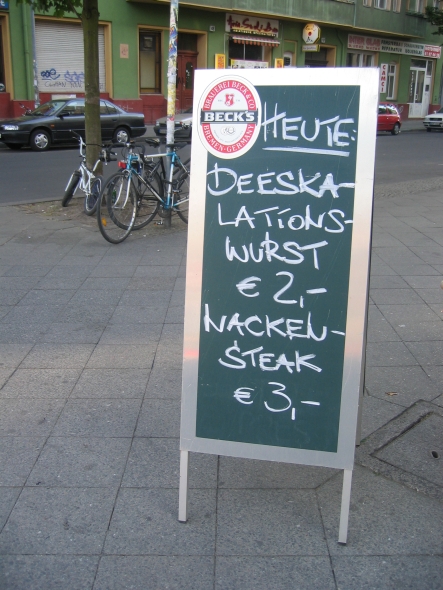 BRAUEREI BECK & CO
BECK'S
BREMEN · GERMANY
HEUTE:
DEESKA-
LATIONS-
WURST
€ 2,-
NACKEN-
STEAK
€ 3,-